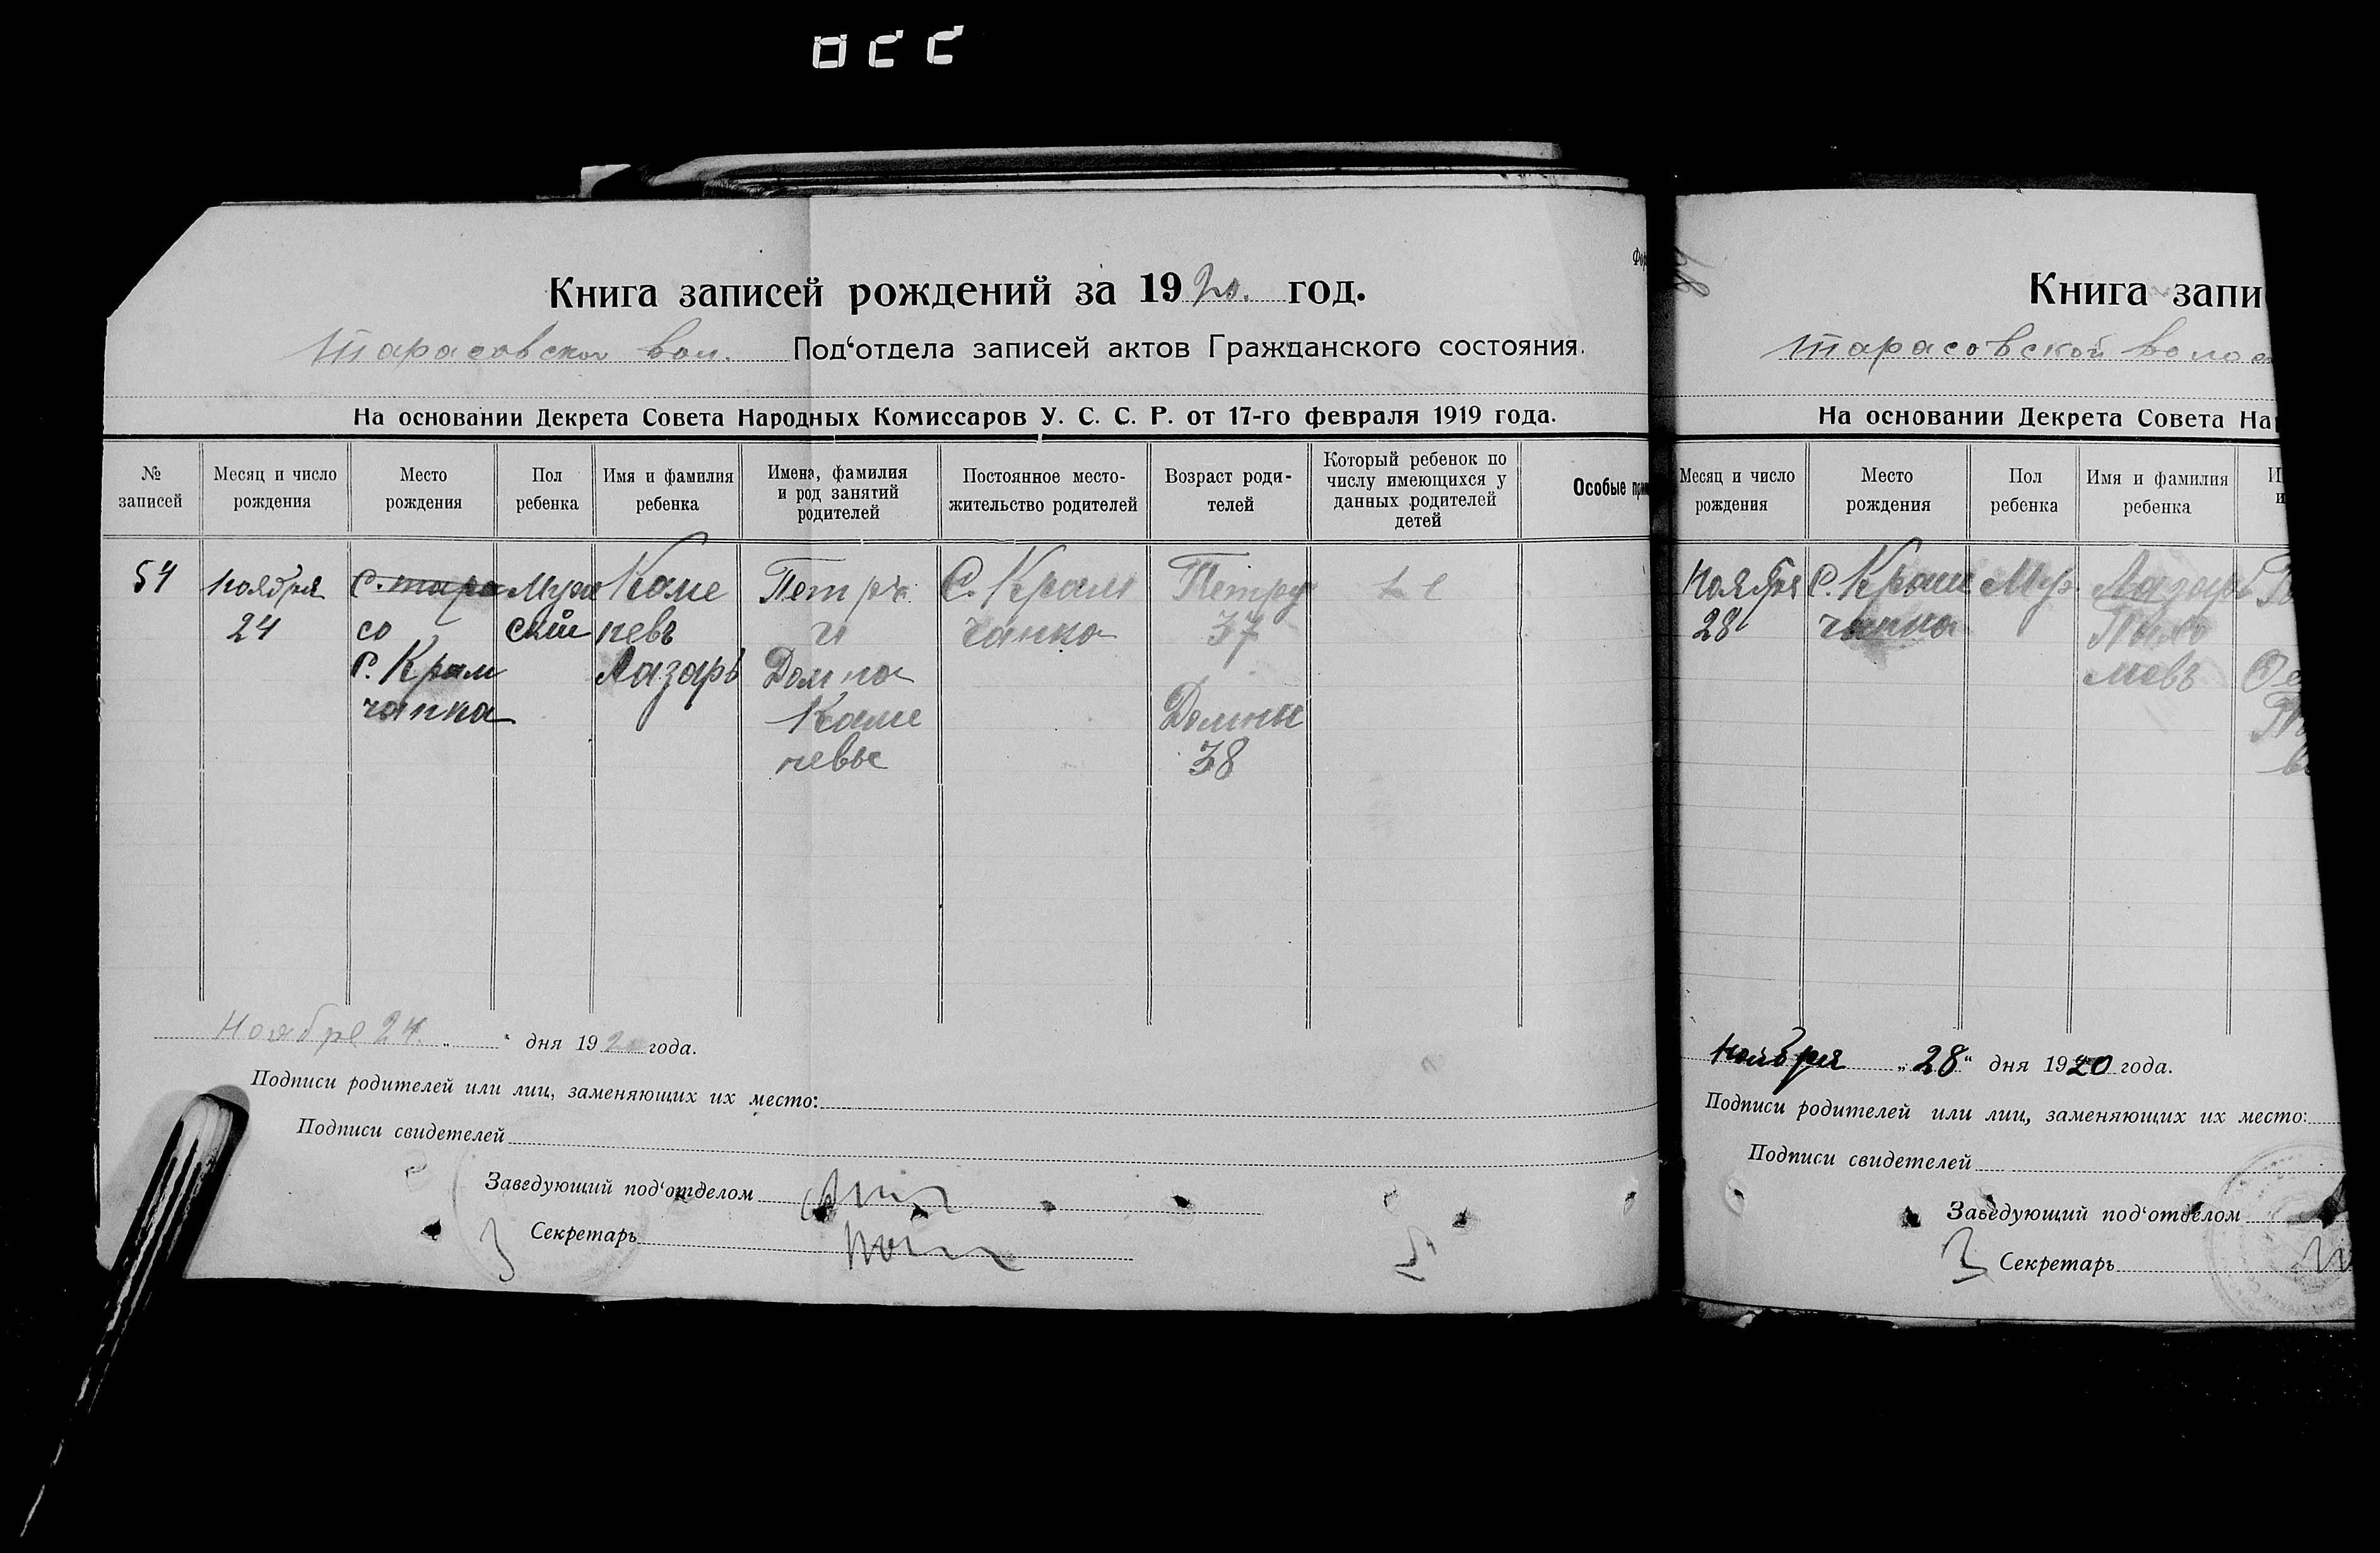 Книга записей рождений за 1920. год.
Тарасовской вол. Под‘отдела записей актов Гражданского состояния.
На основании Декрета Совета Народных Комиссаров У. С. С. Р. от 17-го февраля 1919 года.
№ записей
Месяц и число рождения
Место рождения
Пол ребенка
Имя и фамилия ребенка
Имена, фамилия и род занятий родителей
Постоянное место-жительство родителей
Возраст роди-телей
Который ребенок по числу имеющихся у данных родителей детей
Особые
54
ноября
24
с. Тара
со
с. Крам
чанка
Муж
ской
Каме
невъ
Лазарь
Петръ
и
Домна
Каме
невы
С. Крам
чанка
Петру
37
Домны
38
Ноября 24. „ “ дня 1920 года.
Подписи родителей или лиц, заменяющих их место:
Подписи свидетелей
Заведующий под‘отделом
Секретарь
Книга запи
Тарасовской воло
На основании Декрета Совета На
Месяц и число рождения
Место рождения
Пол ребенка
Имя и фамилия ребенка
Ноября
28
С. Крам
чанка
Муж.
Лазарь
ноября „28“ дня 1920 года.
Подписи родителей или лиц, заменяющих их место:
Подписи свидетелей
Заведующий под‘отделом
Секретарь